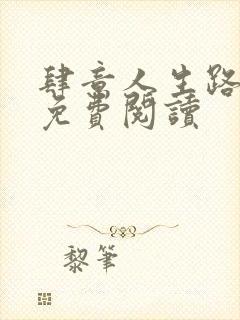 肆意人生路
免費閱讀
黎筆